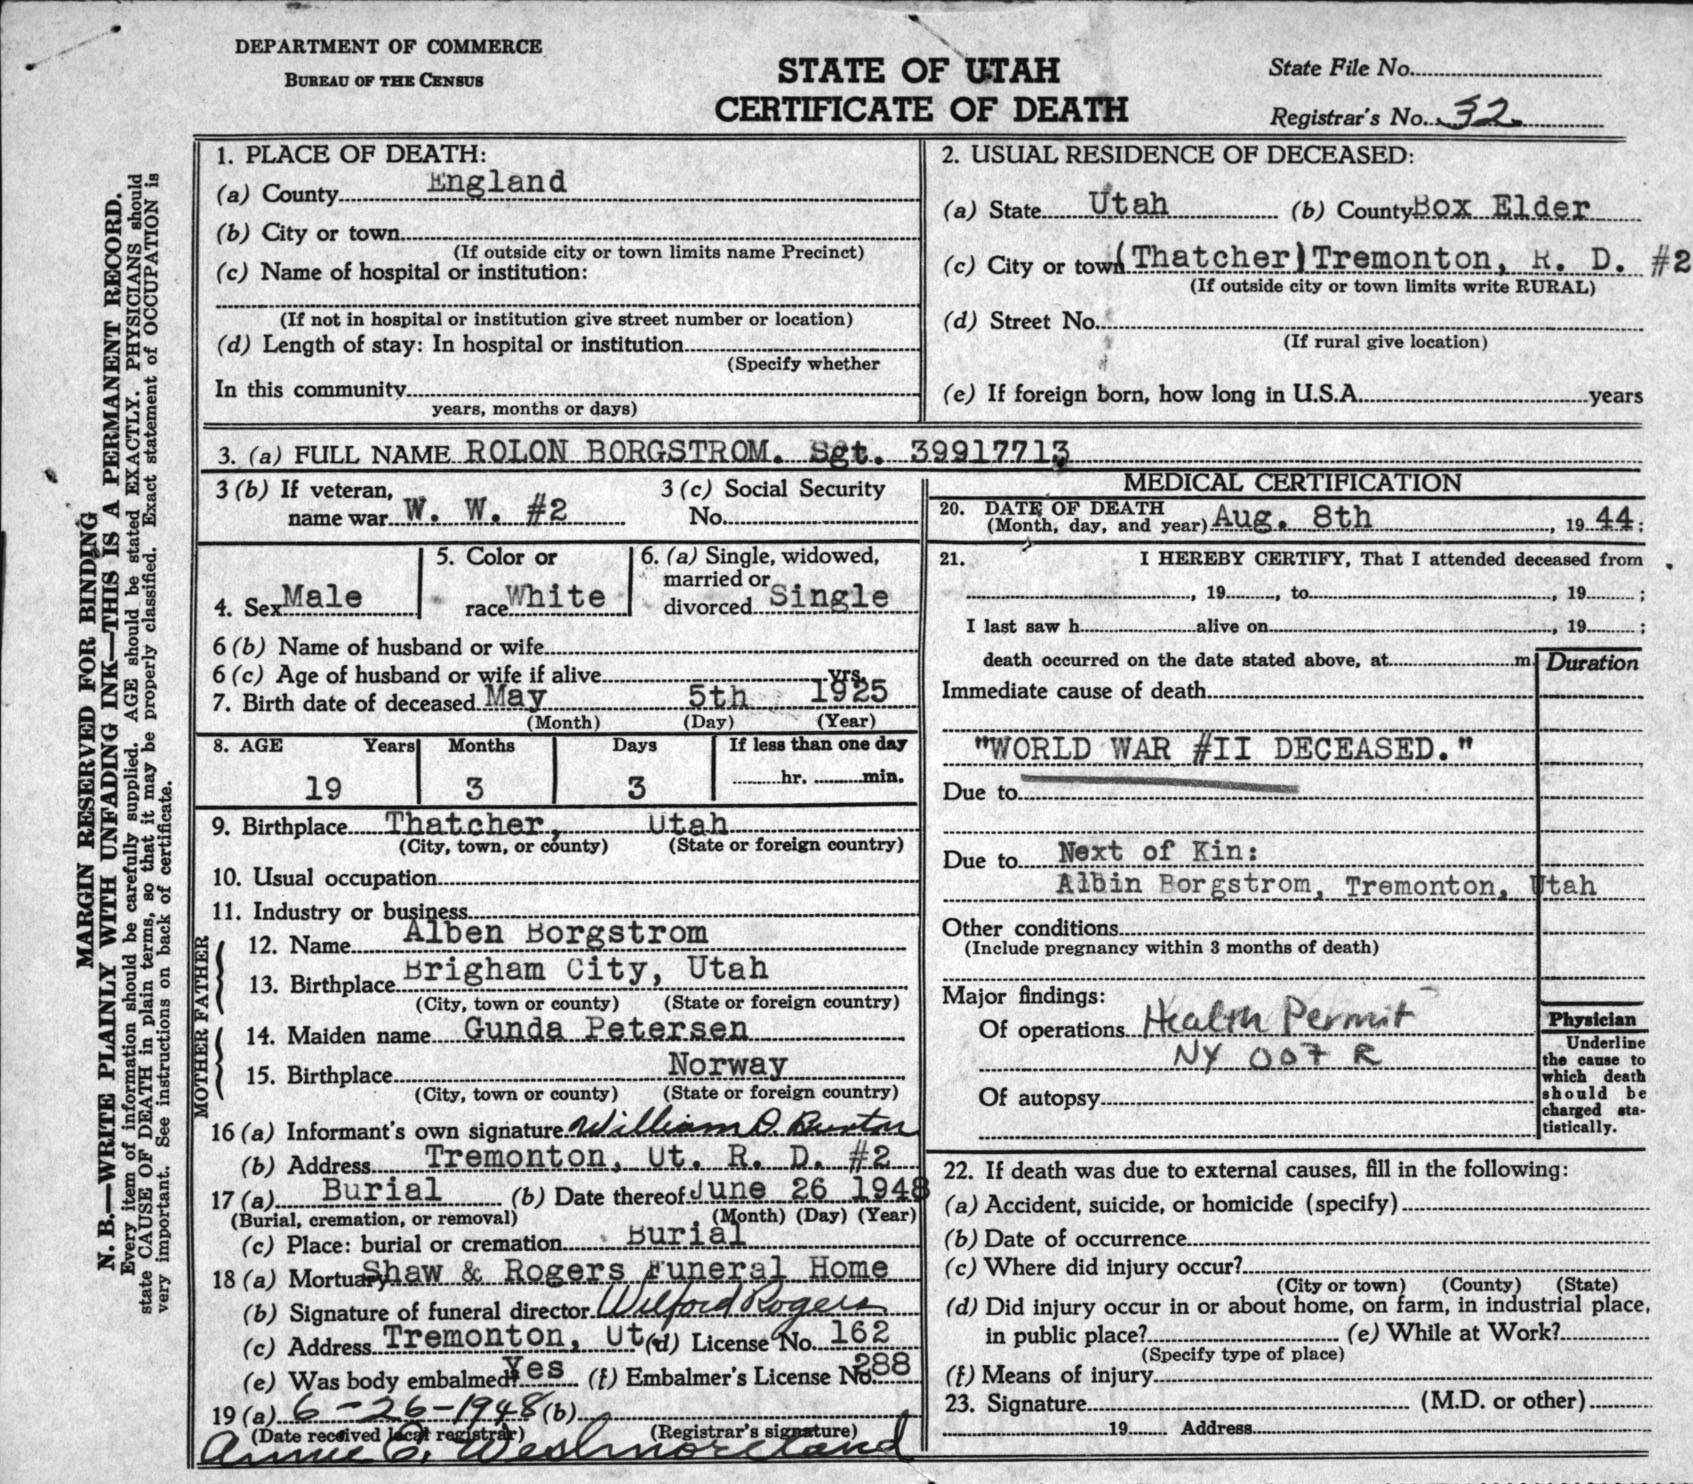 DEPARTMENT OF COMMERCE
BUREAU OF THE CENSUS
STATE OF UTAH
CERTIFICATE OF DEATH
State File No.
Registrar's No. 32
MARGIN RESERVED FOR BINDING
N. B.—WRITE PLAINLY WITH UNFADING INK—THIS IS A PERMANENT RECORD.
Every item of information should be carefully supplied. AGE should be stated EXACTLY. PHYSICIANS should
state CAUSE OF DEATH in plain terms, so that it may be properly classified. Exact statement of OCCUPATION is
very important. See instructions on back of certificate.
1. PLACE OF DEATH:
(a) County England
(b) City or town
(If outside city or town limits name Precinct)
(c) Name of hospital or institution:
(If not in hospital or institution give street number or location)
(d) Length of stay: In hospital or institution
(Specify whether
In this community
years, months or days)
2. USUAL RESIDENCE OF DECEASED:
(a) State Utah (b) County Box Elder
(c) City or town (Thatcher) Tremonton, R. D. #2
(If outside city or town limits write RURAL)
(d) Street No.
(If rural give location)
(e) If foreign born, how long in U.S.A. years
3. (a) FULL NAME ROLON BORGSTROM. Sgt. 39917713
3 (b) If veteran,
name war W. W. #2
3 (c) Social Security
No.
4. Sex Male
5. Color or
race White
6. (a) Single, widowed,
married or
divorced Single
6 (b) Name of husband or wife
6 (c) Age of husband or wife if alive yrs.
7. Birth date of deceased May 5th 1925
(Month) (Day) (Year)
8. AGE Years Months Days If less than one day
19 3 3 hr. min.
9. Birthplace Thatcher, Utah
(City, town, or county) (State or foreign country)
10. Usual occupation
11. Industry or business
FATHER
12. Name Alben Borgstrom
13. Birthplace Brigham City, Utah
(City, town or county) (State or foreign country)
MOTHER
14. Maiden name Gunda Petersen
15. Birthplace Norway
(City, town or county) (State or foreign country)
16 (a) Informant's own signature William D. Buxton
(b) Address Tremonton, Ut. R. D. #2
17 (a) Burial (b) Date thereof June 26 1948
(Burial, cremation, or removal) (Month) (Day) (Year)
(c) Place: burial or cremation Burial
18 (a) Mortuary Shaw & Rogers Funeral Home
(b) Signature of funeral director Wilford Rogers
(c) Address Tremonton, Ut. (d) License No. 162
(e) Was body embalmed? Yes (f) Embalmer's License No. 288
19 (a) 6-26-1948 (b)
(Date received local registrar) (Registrar's signature)
Annie C. Westmoreland
MEDICAL CERTIFICATION
20. DATE OF DEATH
(Month, day, and year) Aug. 8th, 19 44;
21. I HEREBY CERTIFY, That I attended deceased from
, 19 , to , 19 ;
I last saw h alive on , 19 ;
death occurred on the date stated above, at m.
Duration
Immediate cause of death
"WORLD WAR #II DECEASED."
Due to
Due to Next of Kin:
Albin Borgstrom, Tremonton, Utah
Other conditions
(Include pregnancy within 3 months of death)
Major findings:
Of operations Health Permit
NY 007 R
Of autopsy
Physician
Underline
the cause to
which death
should be
charged sta-
tistically.
22. If death was due to external causes, fill in the following:
(a) Accident, suicide, or homicide (specify)
(b) Date of occurrence
(c) Where did injury occur?
(City or town) (County) (State)
(d) Did injury occur in or about home, on farm, in industrial place,
in public place? (e) While at Work?
(Specify type of place)
(f) Means of injury
23. Signature (M.D. or other)
19 Address